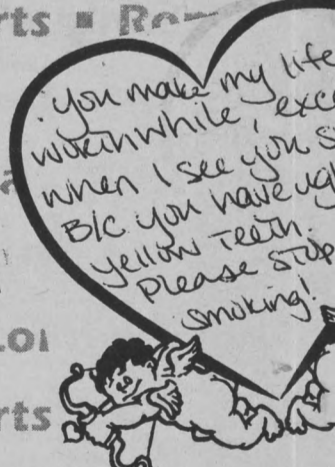 rts ▪ Ro
you make my life
worthwhile, exc
when I see you s
B/C you have ug
yellow teeth.
please stop
smoking!
.oi
rts